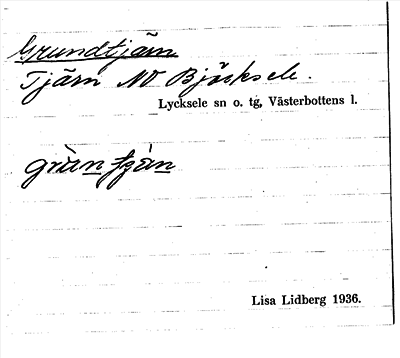 Grundtjärn
Tjärn NV Björksele.
Lycksele sn o. tg, Västerbottens l.
Lisa Lidberg 1936.